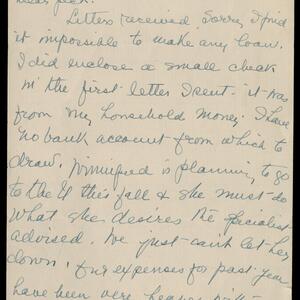 Letter received Sorry I find
it impossible to make any loan.
I did enclose a small check
in the first letter I sent. it was
from my household money. I have
no bank account from which to
draw. Winnifred is planning to go
to the U this fall & she must do
what she desires the specialist
advised. We just can't let her
down. Our expenses for past year
have been very heavy with